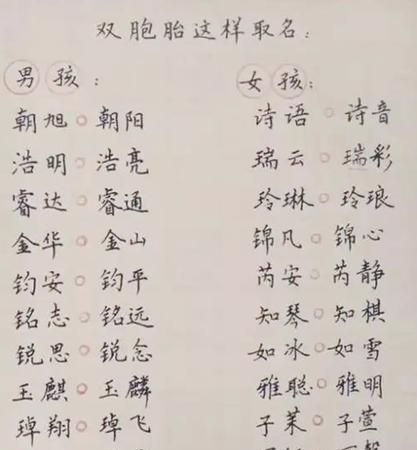 双胞胎这样取名：
男孩：
朝旭○朝阳
浩明○浩亮
睿达○睿通
金华○金山
钧安○钧平
铭志○铭远
锐思○锐念
玉麒○玉麟
璋翔○璋飞
女孩：
诗语○诗音
瑞云○瑞彩
玲琳○玲琅
锦凡○锦心
芮安○芮静
知琴○知棋
如冰○如雪
雅聪○雅明
子茉○子萱